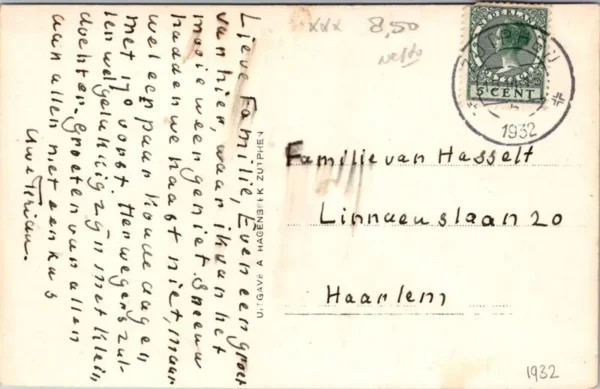 Lieve Familie, Even een groet
van hier, waar ik van het
mooie weer geniet. Sneeuw
hadden we haast niet, maar
wel een paar koude dagen,
met 17° vorst. Hen wegens zul-
len wel gelukkig zijn met klein
dochter. Groeten van allen
aan allen met een kus
Uwe
UITGAVE A HAGENBEEK ZUTPHEN
xxx 8,50
netto
NEDERLAND
5 CENT
ZUTPHEN
1932
Familie van Hasselt
Linnaeuslaan 20
Haarlem
1932